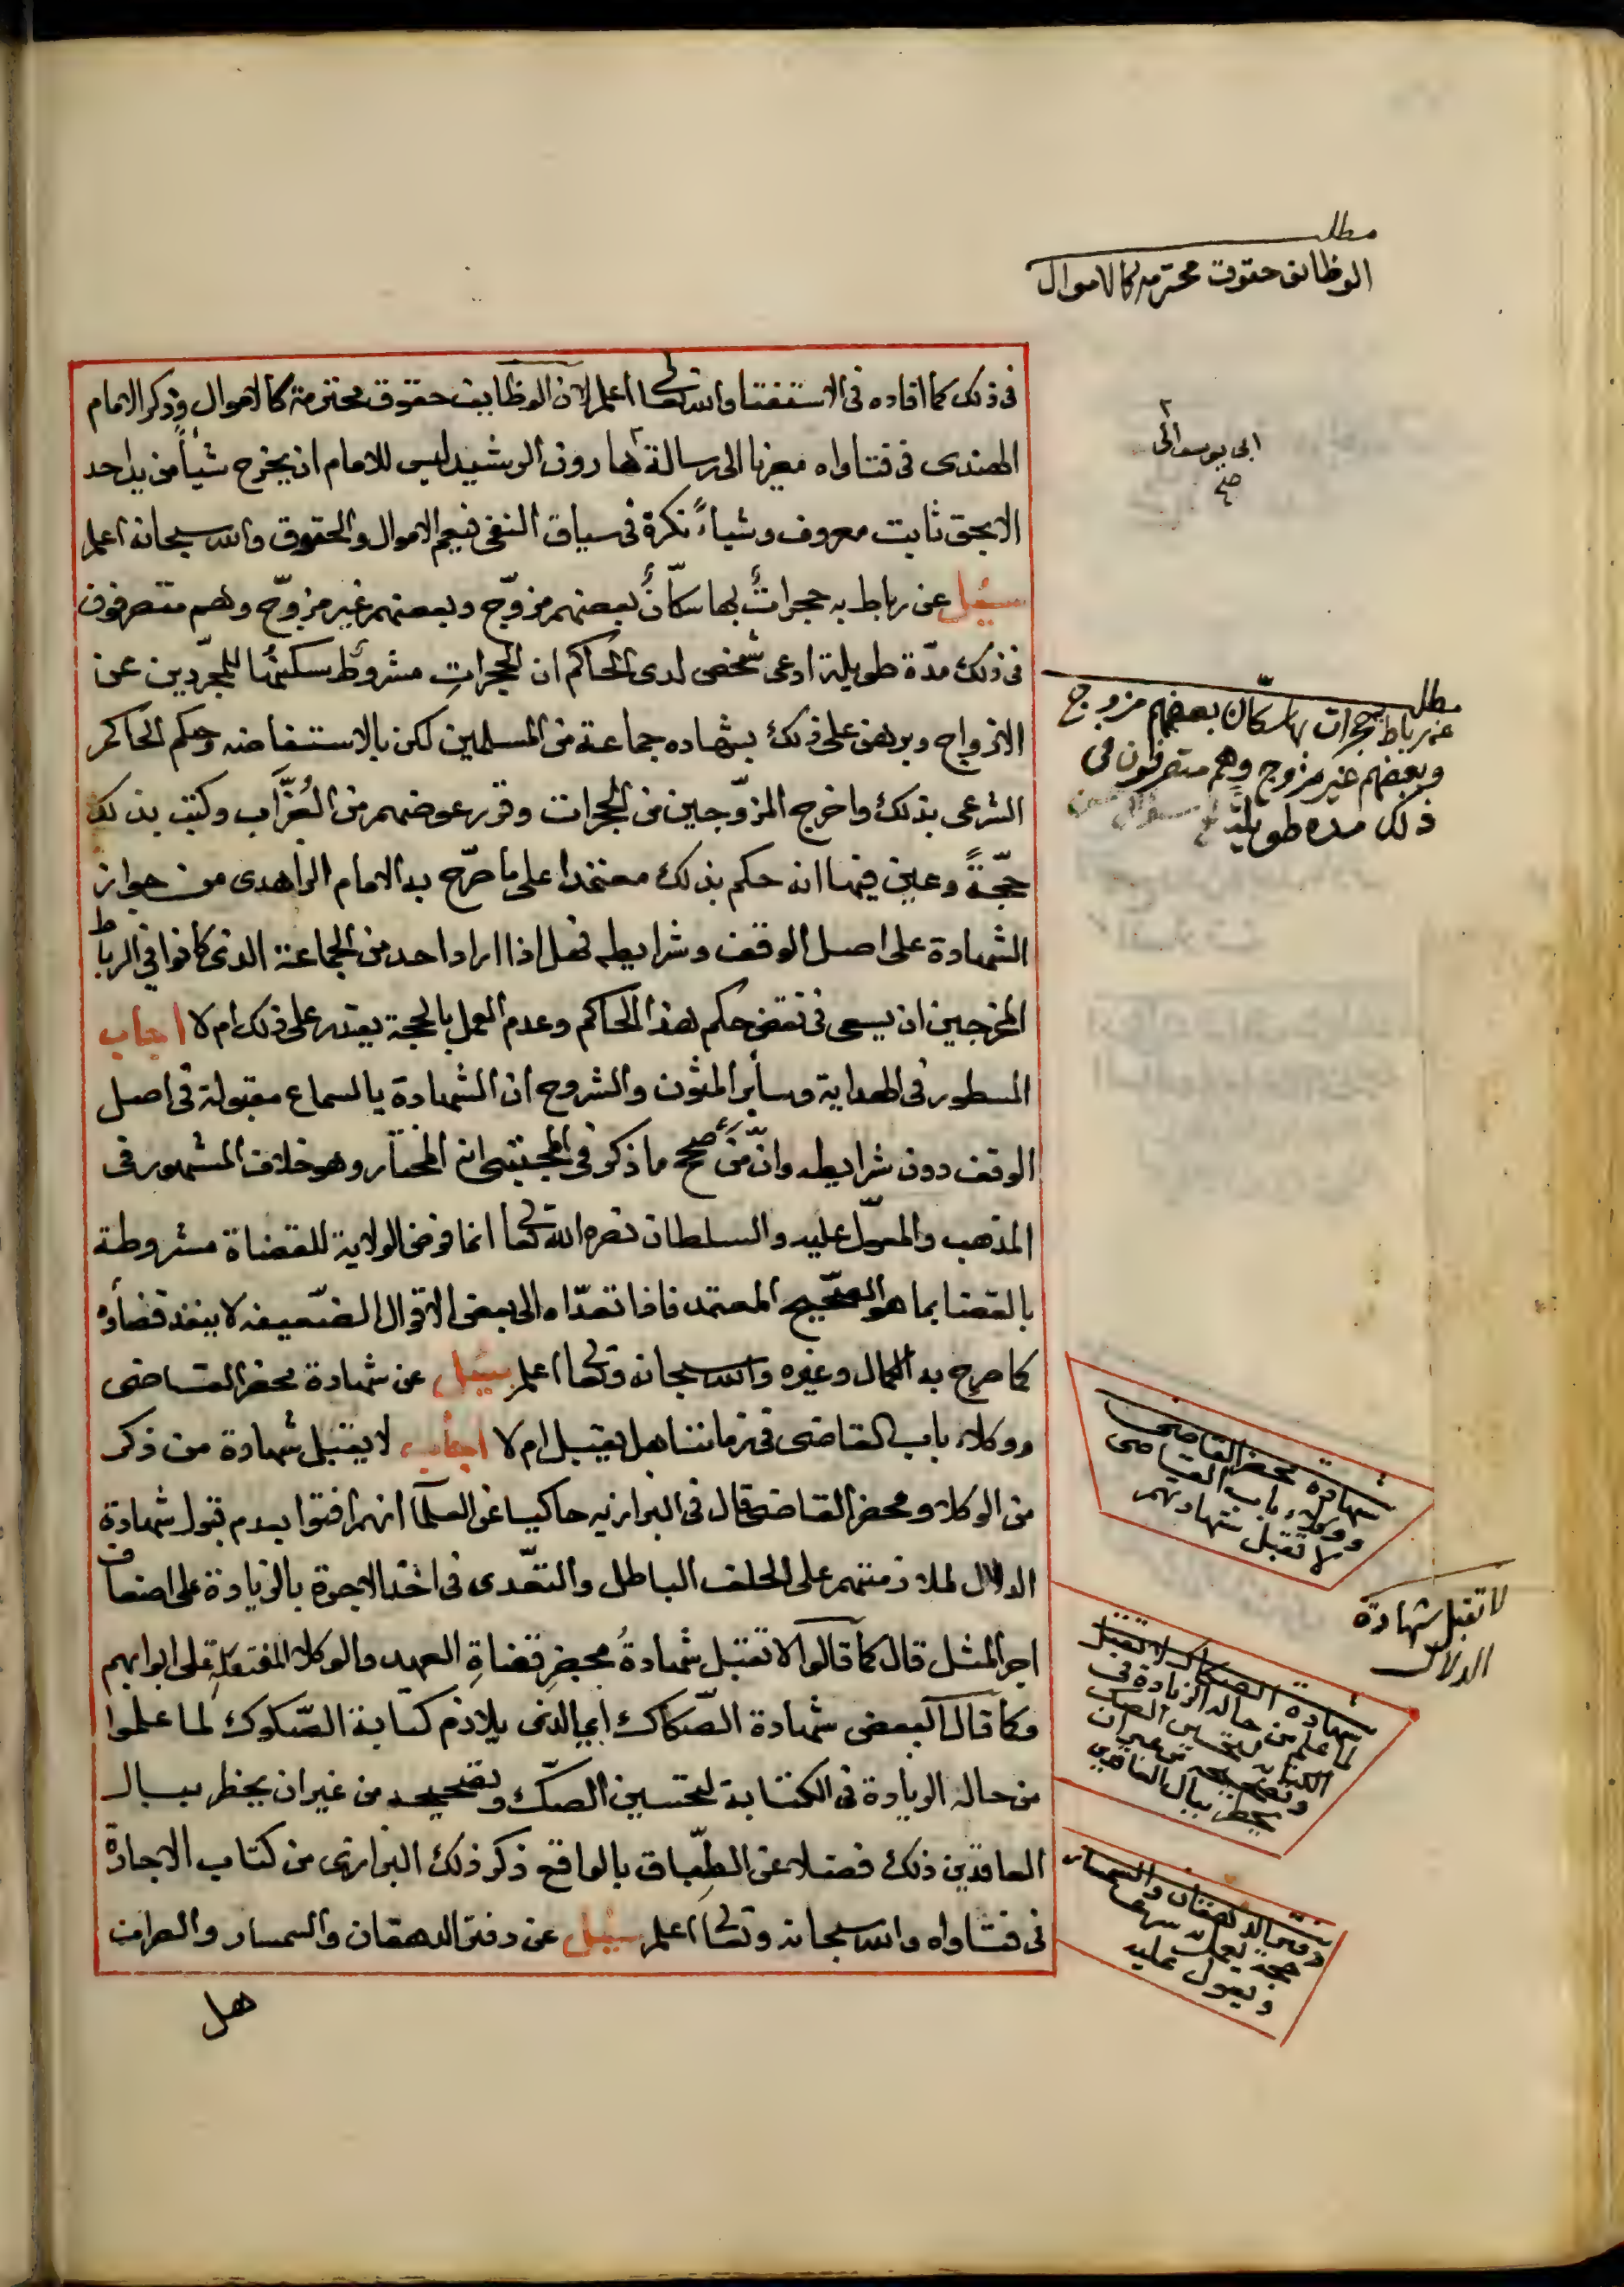 مطلب
الوظائف حقوق محترمه كالاموال
فى ذلك كما افاده فى الاستفتا والله تعالى اعلم لان الوظايف حقوق محترمة كالاموال وذكر الامام
الهندى فى فتاواه معزيا الى رسالة هارون الرشيد ليس للامام ان يخرج شيأ من يد احد
ابى يوسف الى
صح
الا بحق ثابت معروف وشياءً نكرة فى سياق النفى فيعم الاموال والحقوق والله سبحانه اعلم
سئل عن رباط به حجراتٌ بها سكّانٌ بعضهم مزوّج وبعضهم غير مزوّج وهم متصرفون
فى ذلك مدّة طويلة ادعى شخص لدى الحاكم ان الحجراتِ مشروطٌ سكنيها للمجرّدين عن
الازواج وبرهن على ذلك بشهاده جماعة من المسلمين لكن بالاستفاضه وحكم الحاكم
الشرعى بذلك واخرج المزوّجين من الحجرات وقرر عوضهم من العُزّاب وكتب بذلك
حجّةً وعين فيها انه حكم بذلك معتمدا على ما صرّح به الامام الزاهدى من جواز
الشهادة على اصل الوقف وشرايطه فهل اذا اراد احد من الجماعة الذى كانوا فى الرباط
المخرجين ان يسعى فى نقض حكم هذا الحاكم وعدم العمل بالحجة يقدر على ذلك ام لا اجاب
المسطور فى الهداية وسأير المتون والشروح ان الشهادة بالسماع مقبولة فى اصل
الوقف دون شرايطه وانّ مَن صحّح ما ذكر فى المجتبى انه المختار وهو خلاف المشهور فى
المذهب والمعوّل عليه والسلطان نصره الله تعالى انما فوض الولاية للقضاة مشروطة
بالقضا بما هو الصحيح المعتمد فاذا تعدّاه الى بعض الاقوال الضعيفه لا ينفذ قضأوه
كما صرح به الكمال وغيره والله سبحانه وتعالى اعلم سئل عن شهادة محضر القاضى
ووكلاء باب القاضى فى زماننا هل يقبل ام لا اجاب لا يقبل شهادة من ذكر
من الوكلاء ومحضر القاضى قال فى البزازيه حاكيا عن العلمآ انهم افتوا بعدم قبول شهادة
الدلال لملازمتهم على الحلف الباطل والتعّدى فى اخذ الاجرة بالزيادة على اضعاف
اجر المثل قال كما قالوا لا تقبل شهادةُ محضرِ قضاةِ العهد والوكلاء المفتعلةِ على ابوابهم
وكما قال البعض شهادة الصّكاك اى الذى يلازم كتابة الصّكوك لما علموا
من حاله الزيادة فى الكتابة لتحسين الصكّ وتصحيحه من غير ان يخطر ببال
العاقدين ذلك فضلا عن الطِّباق بالواقع ذكر ذلك البزازى من كتاب الاجارة
فى فتاواه والله سبحانه وتعالى اعلم سئل عن دفتر الدهقان والسمسار والصراف
هل
مطلب
عن رباط بحجرات بها سكّان بعضهم مزوج
وبعضهم غير مزوج وهم متصرفون فى
ذلك مده طويلة
شهادة محضر القاضى
ووكلاء باب القاضى
لا تقبل شهادتهم
لا تقبل شهادة
الدلال
شهادة الصكاك لا تقبل
لما علم من حاله الزيادة فى
الكتابة لتحسين الصك
وتصحيحه من غير ان
يخطر ببال العاقدين
دفتر الدهقان والسمسار
حجة يعمل به شرعا
ويعول عليه